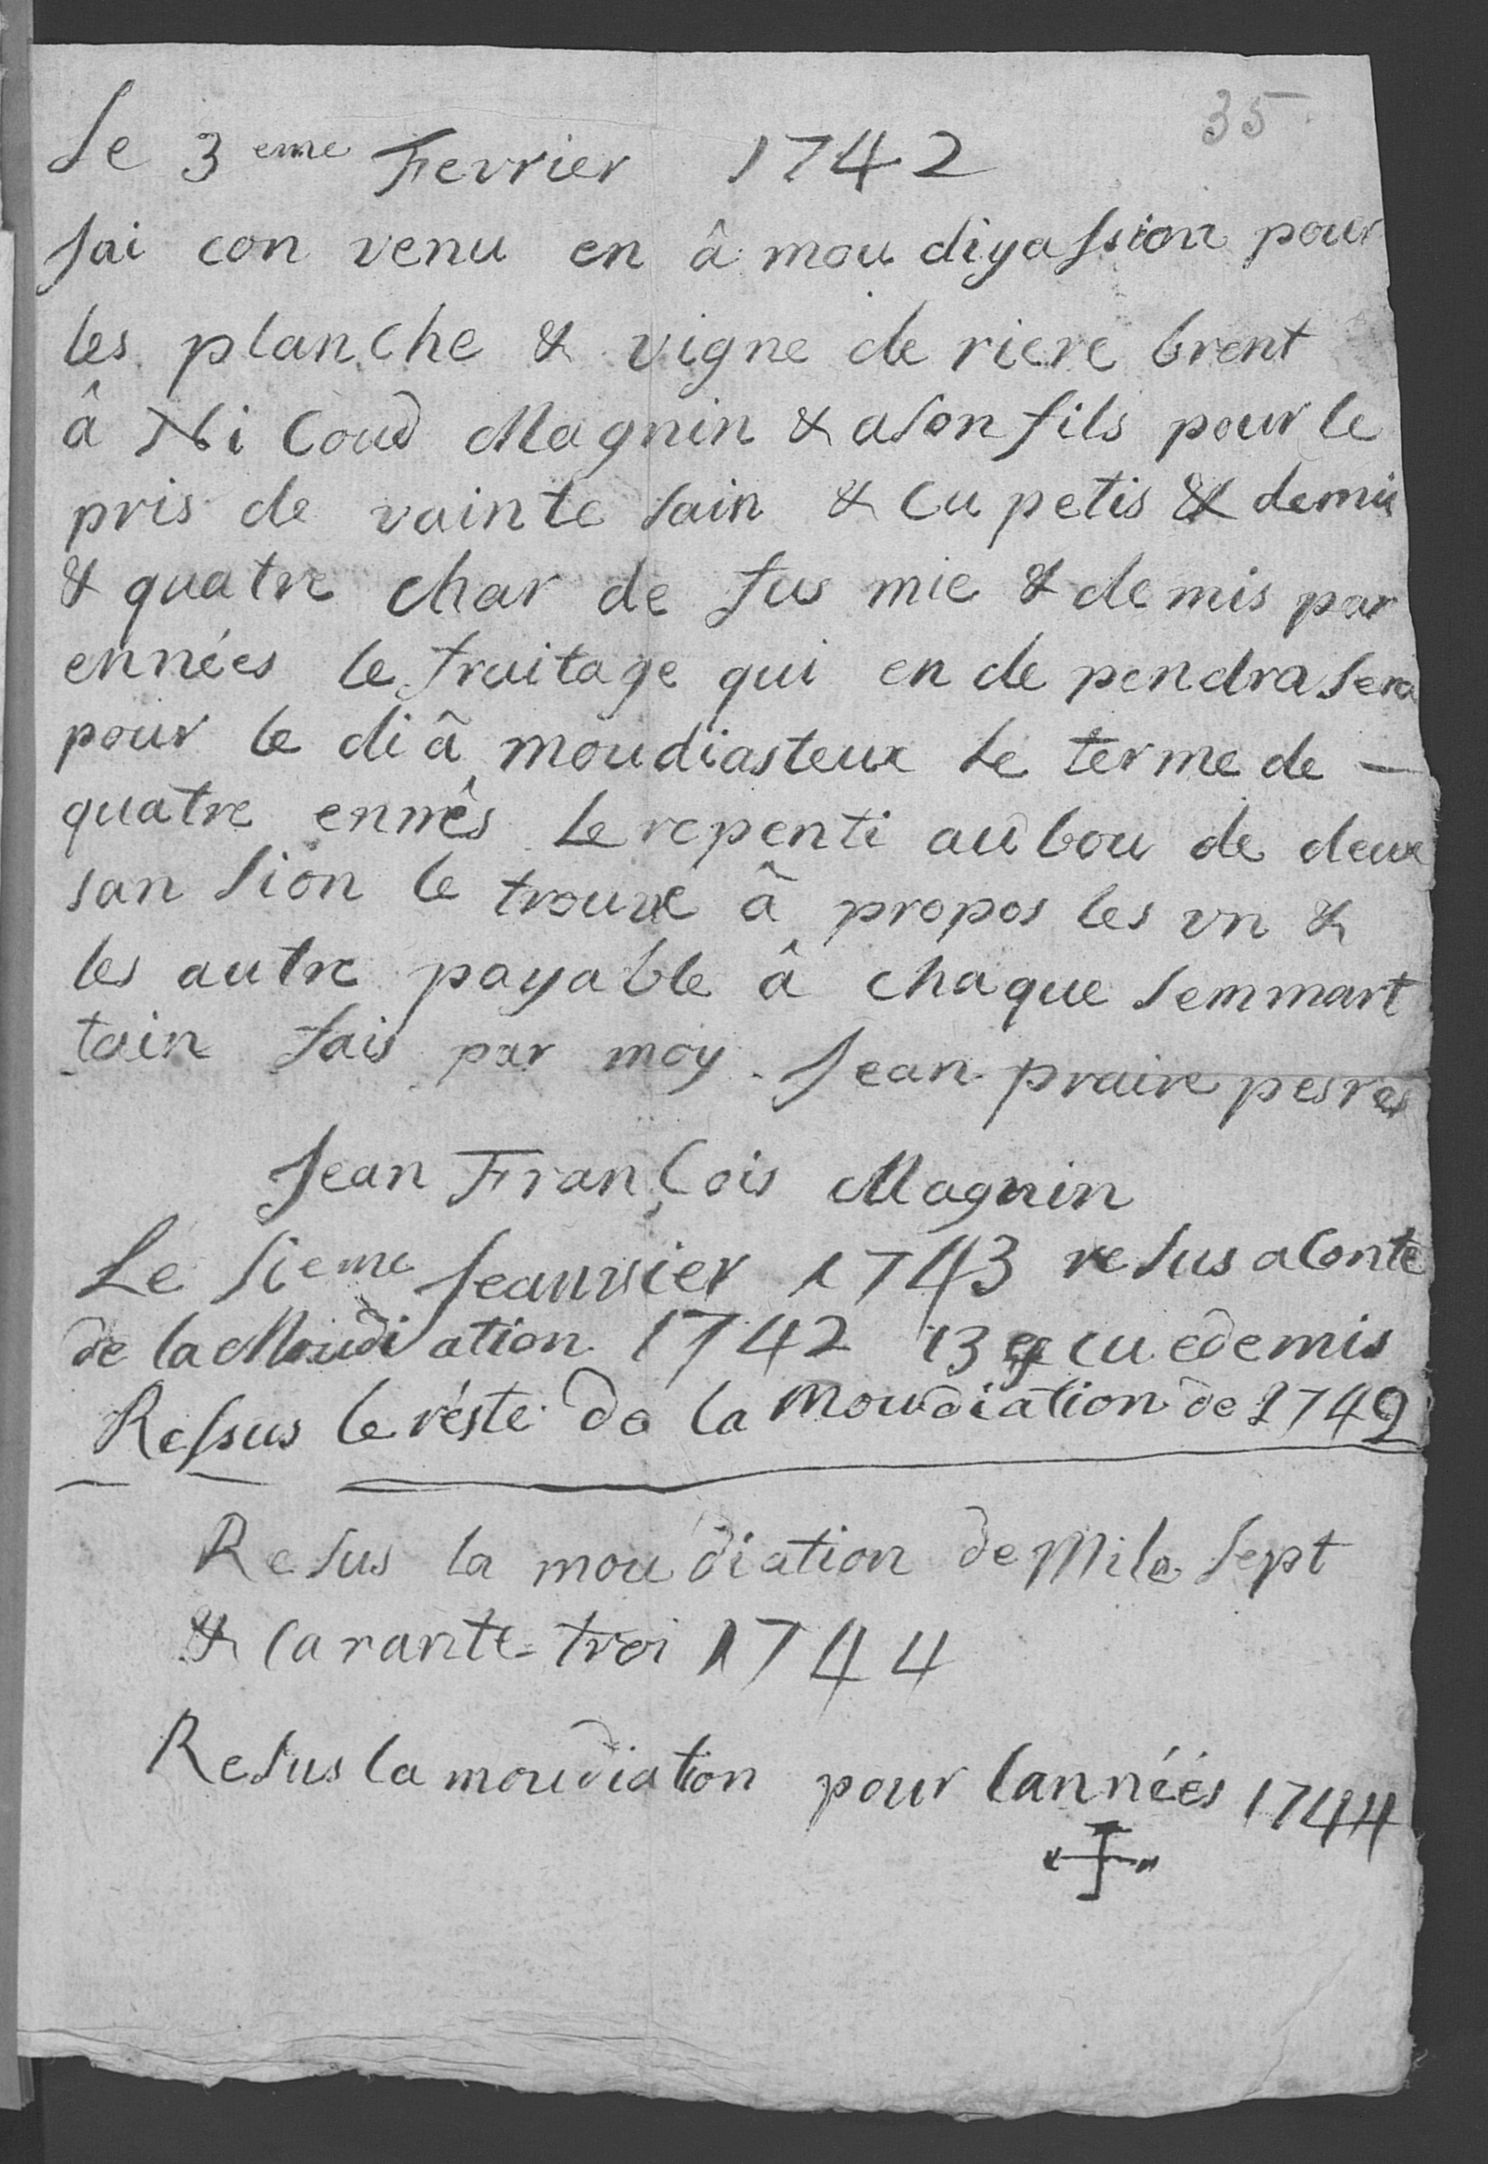 35
Le 3eme Fevrier 1742
Jai con venu en â mou diyassion pour
les planche & vigne de riere brent
â Ni Coud Magnin & a son fils pour le
pris de vainte sain & Cu petis & demis
& quatre char de fus mie & demis par
ennées le fruitage qui en de pendra sera
pour le di â moudiasteux Le terme de —
quatre ennés Le repenti au bou de deux
san sion le trouve â propos les vn &
les autre payable â chaque semmart
tain fais par moy Jean praire pesres
Jean François Magnin
Le sieme Jeanvier 1743 resus a Conte
de la Moudiation 1742 13 e Cu e demis
Ressus le réste de la moudiation de 1742
Resus la moudiation de Mile sept
& Carante troi 1744
Resus la moudiation pour lannéés 1744